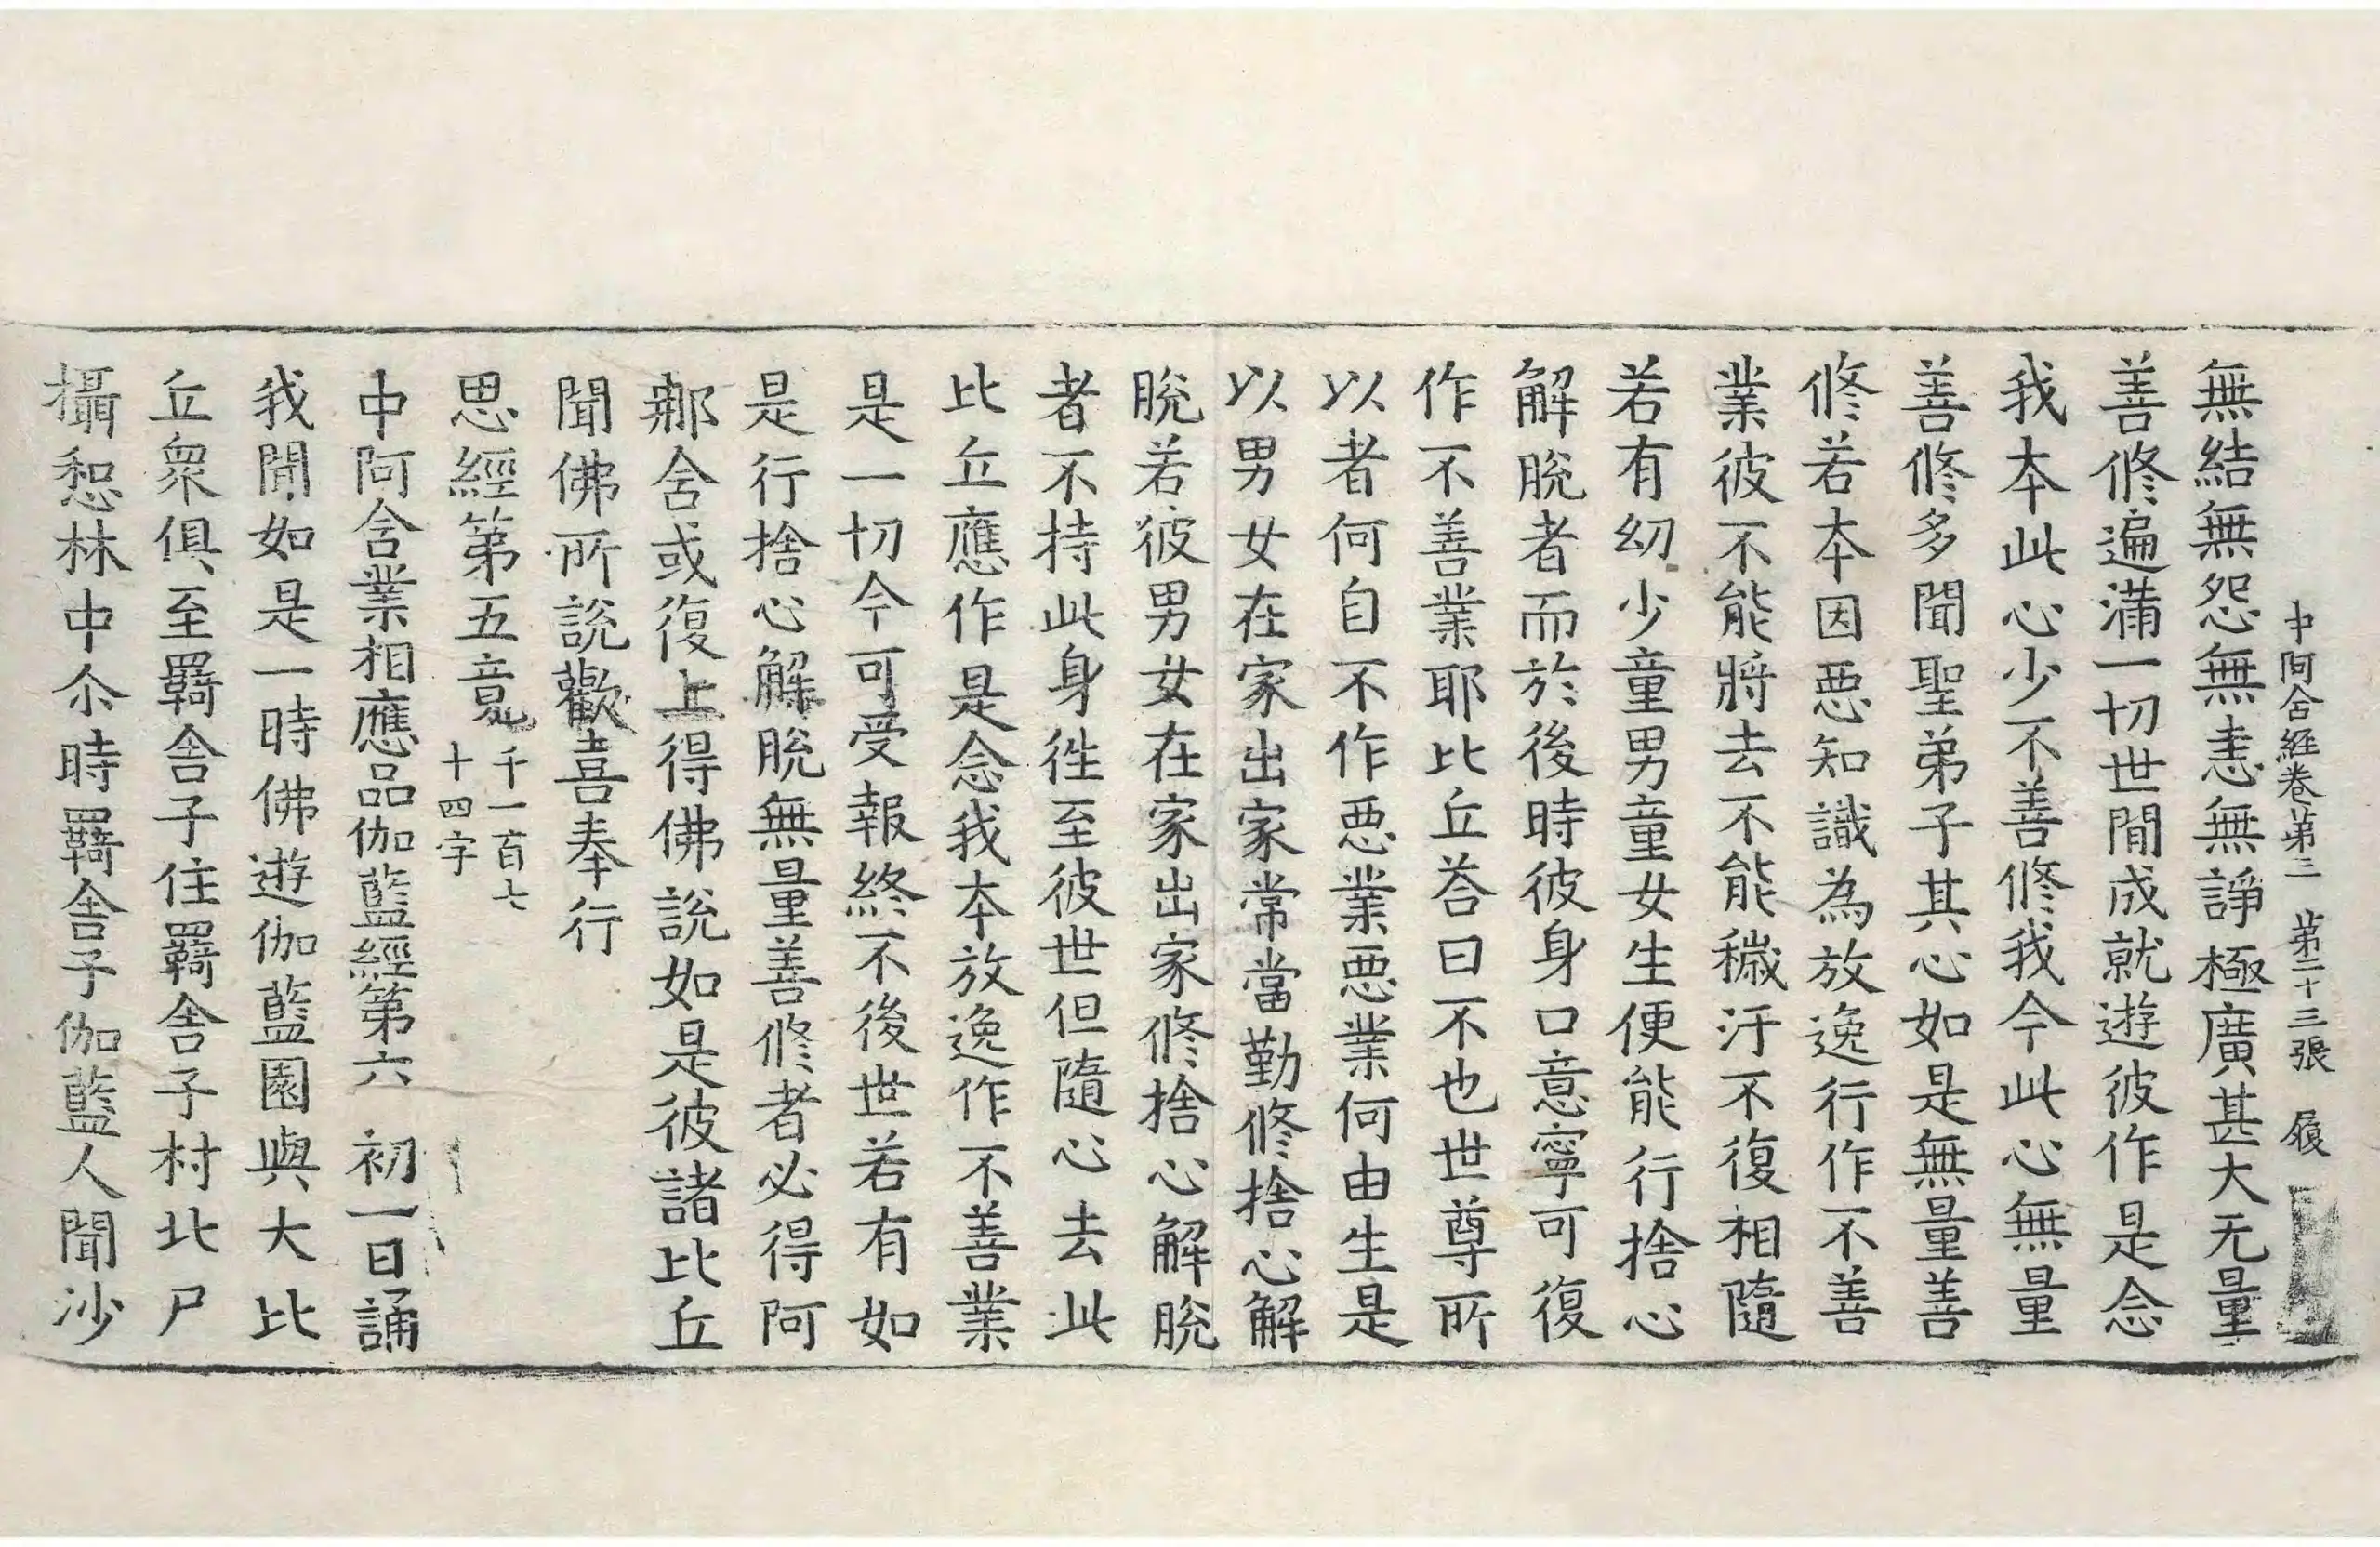 中阿含経卷第三 苐二十三張 履
無結無怨無恚無諍極廣甚大无量
善修遍滿一切世間成就遊彼作是念
我本此心少不善修我今此心無量
善修多聞聖弟子其心如是無量善
修若本因惡知識為放逸行作不善
業彼不能將去不能穢汙不復相隨
若有幼少童男童女生便能行捨心
解脫者而於後時彼身口意寧可復
作不善業耶比丘荅曰不也世尊所
以者何自不作惡業惡業何由生是
以男女在家出家常當勤修捨心解
脫若彼男女在家出家修捨心解脫
者不持此身徃至彼世但隨心去此
比丘應作是念我本放逸作不善業
是一切今可受報終不後世若有如
是行捨心解脫無量善修者必得阿
那含或復上得佛說如是彼諸比丘
聞佛所說歡喜奉行
思經第五竟 千一百七
十四字
中阿含業相應品伽藍經第六 初一日誦
我聞如是一時佛遊伽藍園與大比
丘衆俱至羇舍子住羇舍子村北尸
攝惒林中尒時羇舍子伽藍人聞沙